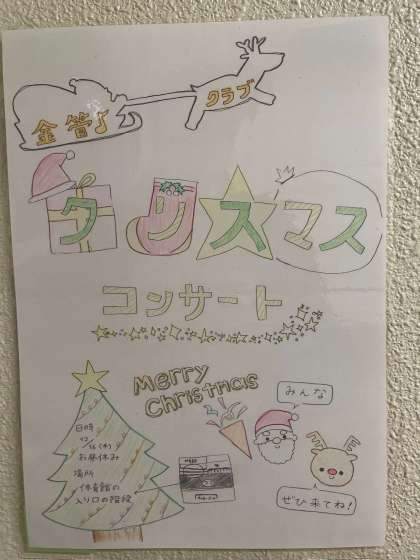 金管♪
クラブ
クリスマス
コンサート
Merry
Christmas
みんな
日時
12/16(木)
お昼休み
場所
体育館の
入り口の階段
ぜひ来てね!